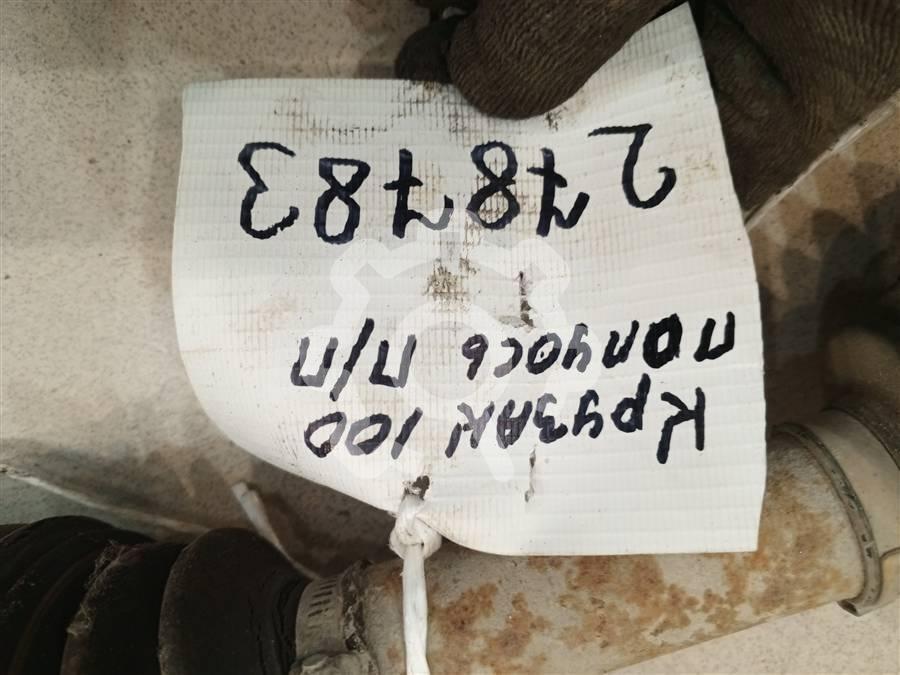 Крузак 100
полуось п/п
278783